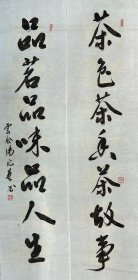 茶色茶香茶故事
品茗品味品人生